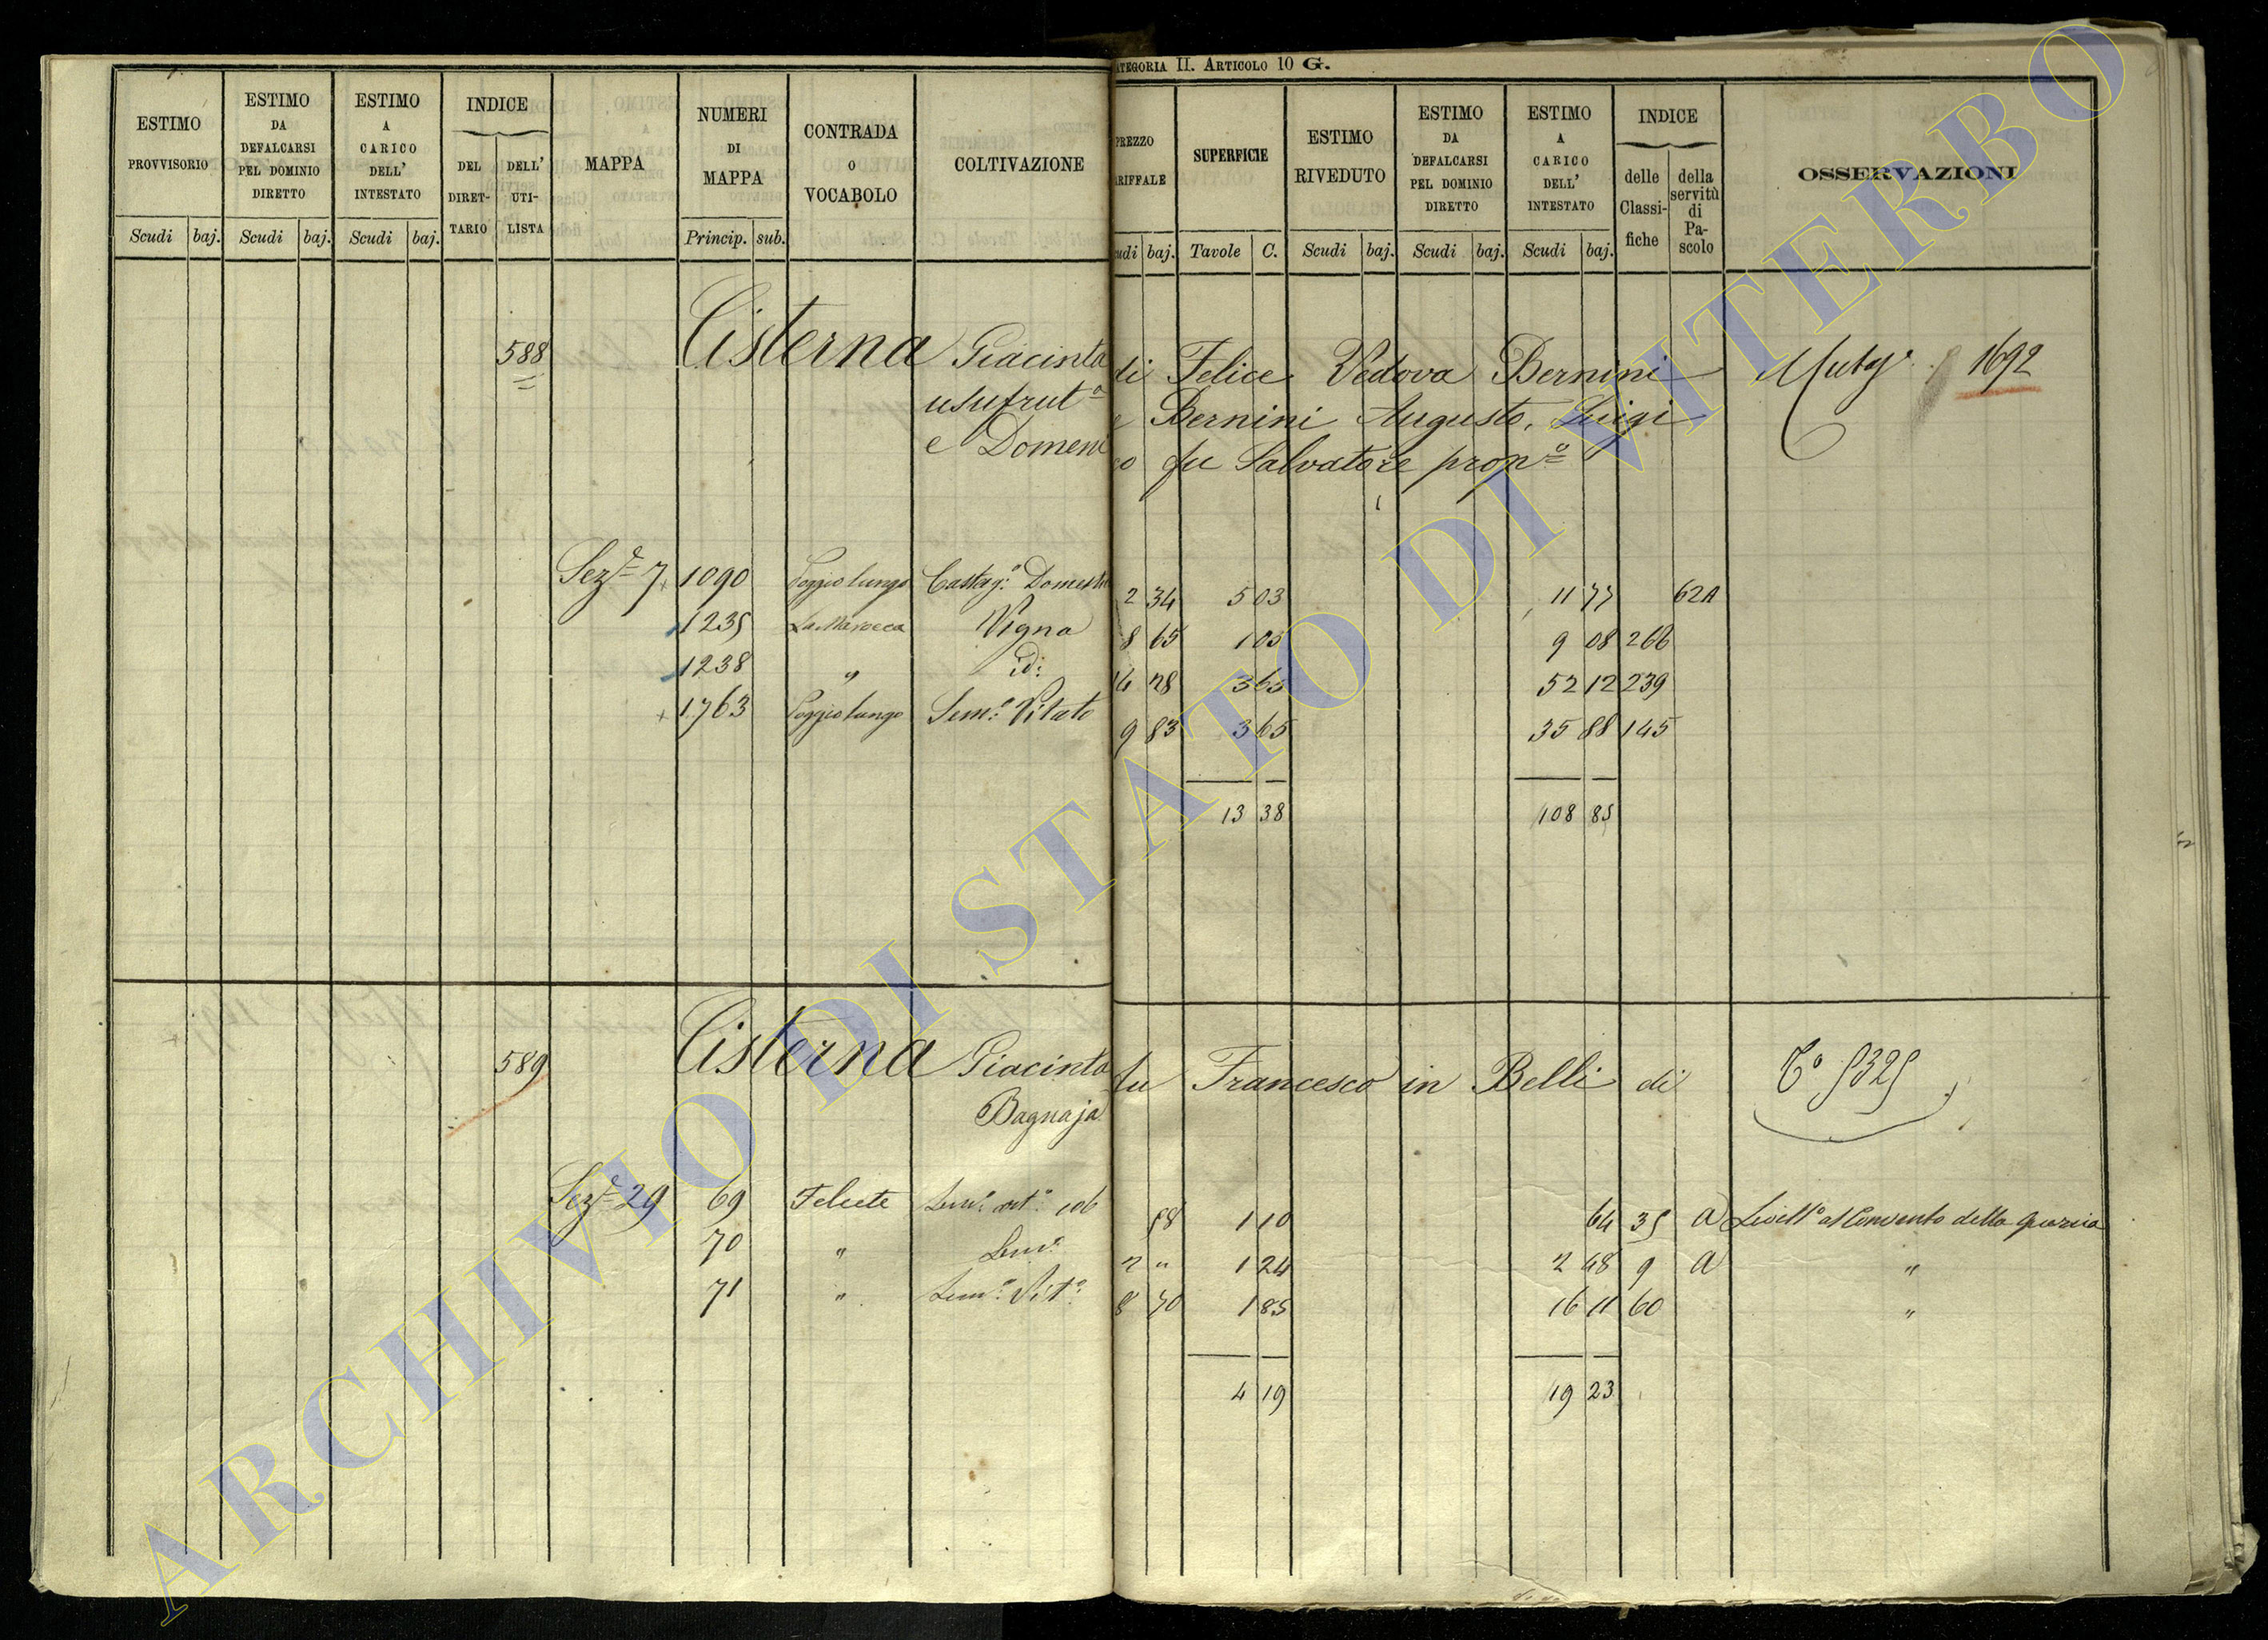 ATEGORIA II. ARTICOLO 10 G.
ESTIMO PROVVISORIO
ESTIMO DA DEFALCARSI PEL DOMINIO DIRETTO
ESTIMO A CARICO DELL' INTESTATO
INDICE
DEL DIRET-TARIO
DELL' UTI-LISTA
MAPPA
NUMERI DI MAPPA
CONTRADA O VOCABOLO
COLTIVAZIONE
PREZZO RIFFALE
SUPERFICIE
ESTIMO RIVEDUTO
ESTIMO DA DEFALCARSI PEL DOMINIO DIRETTO
ESTIMO A CARICO DELL' INTESTATO
INDICE
delle Classi-fiche
della servitù di Pa-scolo
OSSERVAZIONI
Scudi baj. Scudi baj. Scudi baj. Princip. sub. udi baj. Tavole C. Scudi baj. Scudi baj. Scudi baj.
588 Cisterna Giacinta di Felice Vedova Bernini 1692
usufrut.a e Bernini Augusto, Luigi
e Domenico fu Salvatore prop.o
Sez.e 7 1090 Poggio lungo Castag.o Domest 2 34 5 03 11 77 62A
1235 La Marocca Vigna 8 65 1 05 9 08 266
1238 " id: 14 28 3 65 52 12 239
1763 Poggio lungo Sem.o Vitato 9 83 3 65 35 88 145
13 38 108 85
589 Cisterna Giacinta fu Francesco in Belli di 5325
Bagnaja
Sez.e 29 69 Felcete 58 1 10 64 35 a Livell.o al Convento della Quercia
70 " Sem.o 2 " 1 24 2 48 9 a "
71 " Sem.o Vit.o 8 70 1 85 16 11 60 "
4 19 19 23
ARCHIVIO DI STATO DI VITERBO